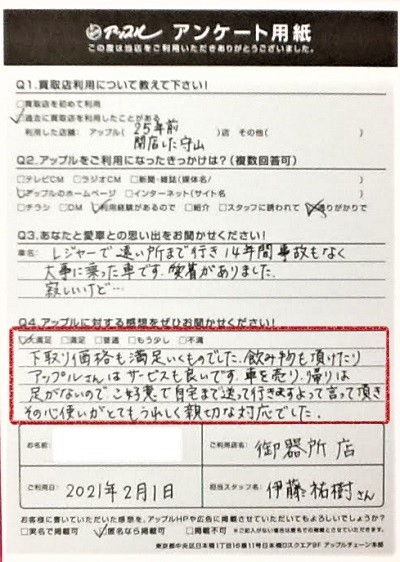 アップル アンケート用紙
この度は当店をご利用いただきありがとうございました。
Q1.買取店利用について教えて下さい!
□買取店を初めて利用
☑過去に買取店を利用したことがある
利用した店舗: アップル( 25年前 )店 その他( )
開店した守山
Q2.アップルをご利用になったきっかけは?(複数回答可)
□テレビCM □ラジオCM □新聞・雑誌(媒体名/ )
☑アップルのホームページ □インターネット(サイト名 )
□チラシ □DM ☑利用経験があるので □紹介 □スタッフに誘われて ☑通りがかりで
Q3.あなたと愛車との思い出をお聞かせください!
車名: レジャーで遠い所まで行き14年間事故もなく
大事に乗った車です。愛着がありました。
寂しいけど…
Q4.アップルに対する感想をぜひお聞かせください!
☑大満足 □満足 □普通 □もう少し □不満
下取り価格も満足いくものでした。飲み物も頂けたり
アップルさんはサービスも良いです。車を売り、帰りは
足がないので ご好意で自宅まで送って行きますよって言って頂き
その心使いがとてもうれしく親切な対応でした。
お名前:
ご利用店名: 御器所店
ご利用日: 2021年2月1日
担当スタッフ名: 伊藤祐樹さん
お客様に書いていただいた感想を、アップルHPや広告に掲載させていただいてもよろしいでしょうか?
□実名で掲載可 ☑匿名なら掲載可 □掲載不可 ※ご記入がない場合は匿名で掲載とさせていただきます。
東京都中央区日本橋1丁目16番11号日本橋Dスクエア9F アップルチェーン本部